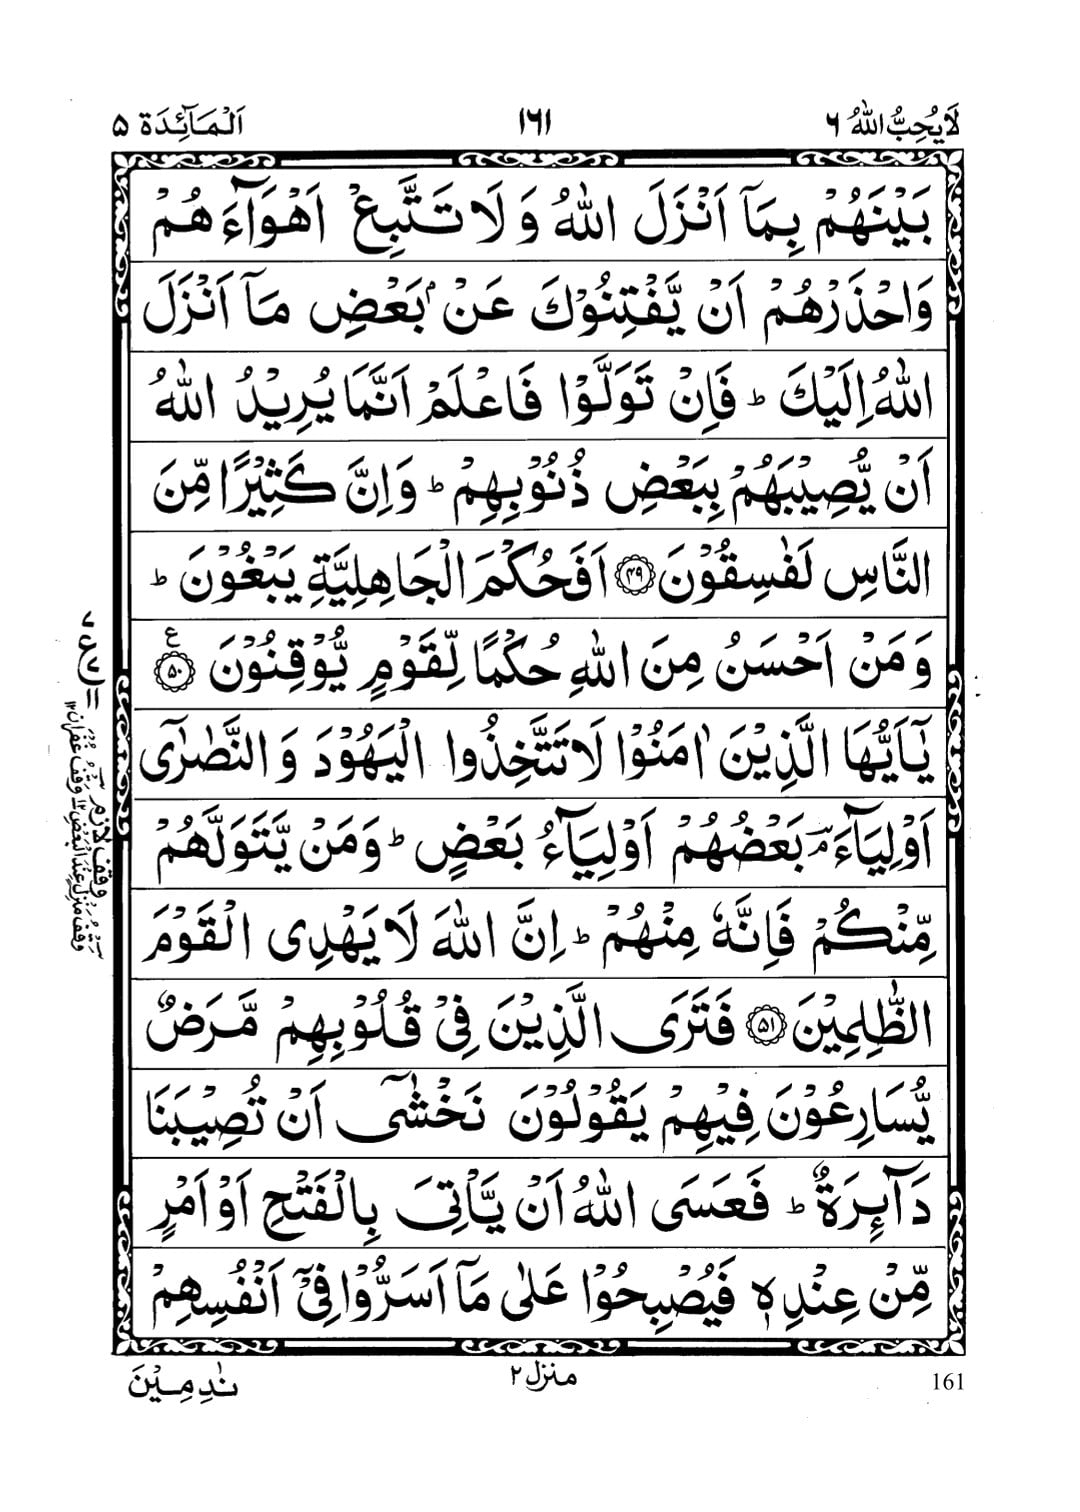 لَا يُحِبُّ اللّٰهُ ٦
١٦١
اَلْمَآئِدَة ۵
بَيْنَهُمْ بِمَآ اَنْزَلَ اللّٰهُ وَ لَا تَتَّبِعْ اَهْوَآءَهُمْ
وَاحْذَرْهُمْ اَنْ يَّفْتِنُوْكَ عَنْۢ بَعْضِ مَآ اَنْزَلَ
اللّٰهُ اِلَيْكَ ؕ فَاِنْ تَوَلَّوْا فَاعْلَمْ اَنَّمَا يُرِيْدُ اللّٰهُ
اَنْ يُّصِيْبَهُمْ بِبَعْضِ ذُنُوْبِهِمْ ؕ وَاِنَّ كَثِيْرًا مِّنَ
النَّاسِ لَفٰسِقُوْنَ ﴿۴۹﴾ اَفَحُكْمَ الْجَاهِلِيَّةِ يَبْغُوْنَ ؕ
وَمَنْ اَحْسَنُ مِنَ اللّٰهِ حُكْمًا لِّقَوْمٍ يُّوْقِنُوْنَ ﴿۵۰﴾ ع
يٰۤاَيُّهَا الَّذِيْنَ اٰمَنُوْا لَا تَتَّخِذُوا الْيَهُوْدَ وَالنَّصٰرٰۤى
اَوْلِيَآءَ ۘ بَعْضُهُمْ اَوْلِيَآءُ بَعْضٍ ؕ وَمَنْ يَّتَوَلَّهُمْ
مِّنْكُمْ فَاِنَّهٗ مِنْهُمْ ؕ اِنَّ اللّٰهَ لَا يَهْدِى الْقَوْمَ
الظّٰلِمِيْنَ ﴿۵۱﴾ فَتَرَى الَّذِيْنَ فِيْ قُلُوْبِهِمْ مَّرَضٌ
يُّسَارِعُوْنَ فِيْهِمْ يَقُوْلُوْنَ نَخْشٰۤى اَنْ تُصِيْبَنَا
دَآئِرَةٌ ؕ فَعَسَى اللّٰهُ اَنْ يَّاْتِىَ بِالْفَتْحِ اَوْ اَمْرٍ
مِّنْ عِنْدِهٖ فَيُصْبِحُوْا عَلٰى مَآ اَسَرُّوْا فِيْۤ اَنْفُسِهِمْ
نٰدِمِيْنَ
منزل ٢
161
وقف لازم
وقف منزل عند البعض ١٢ وقف غفران ١٢